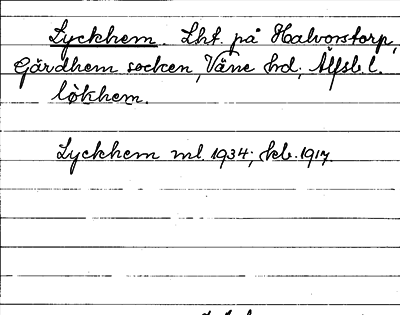 Lyckhem. Lht. på Halvorstorp,
Gärdhem socken, Väne hd, Älfsb. l.
lökhem.
Lyckhem ml. 1934; kb. 1917